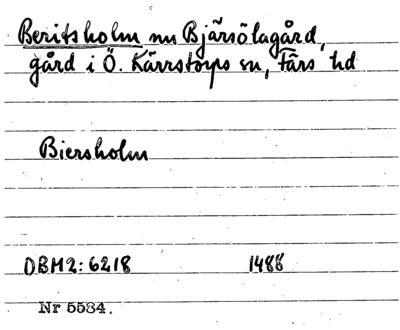 Beritsholm nu Bjärsölagård,
gård i Ö. Kärrstorps sn, Färs hd
Biersholm
DBM2: 6218 1488
Nr 5534.